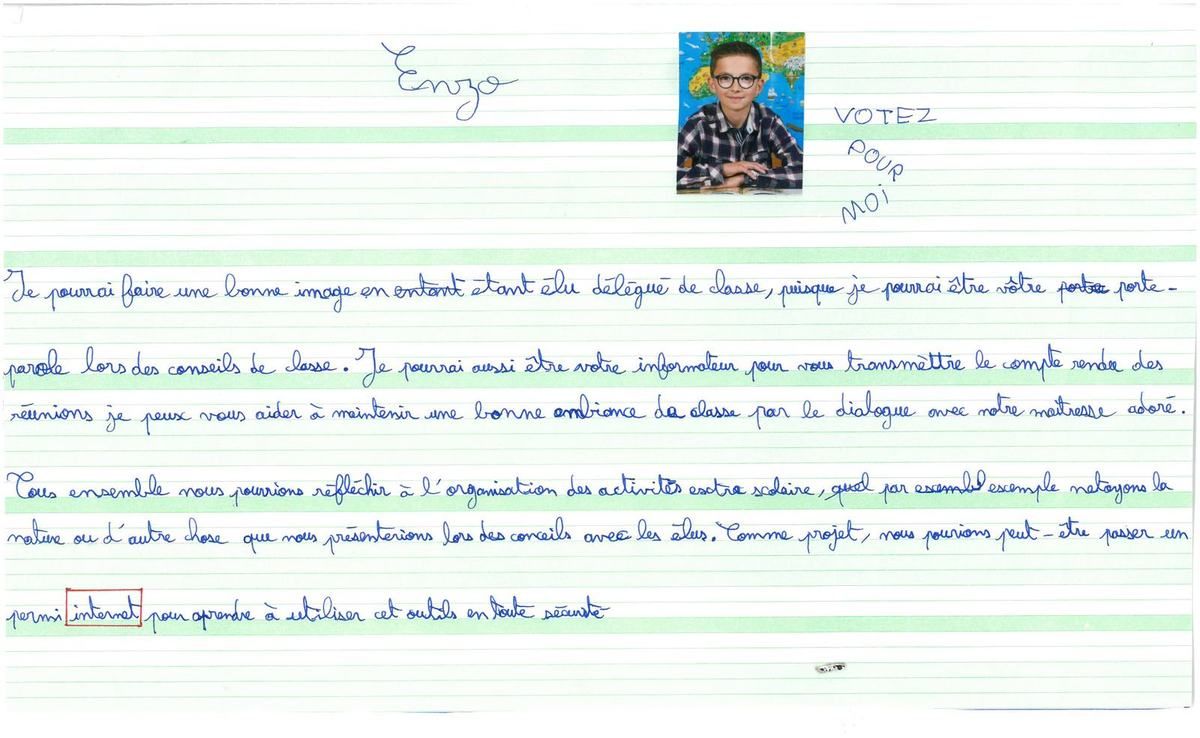 Enzo
VOTEZ
POUR
MOI
Je pourrai faire une bonne image en entant étant élu délégué de classe, puisque je pourrai être vôtre porte porte-
parole lors des conseils de classe. Je pourrai aussi être votre informateur pour vous transmèttre le compte rendu des
réunions je peux vous aider à maintenir une bonne ambiance de classe par le dialogue avec notre maîtresse adoré.
Tous ensemble nous pourrions réfléchir à l'organisation des activités exstra scolaire, quel par exsemble exemple netoyons la
nature ou d'autre chose que nous présenterions lors des conceils avec les élus. Comme projet, nous pourions peut-être passer un
permi internet pour aprendre à utiliser cet outils en toute sécurité